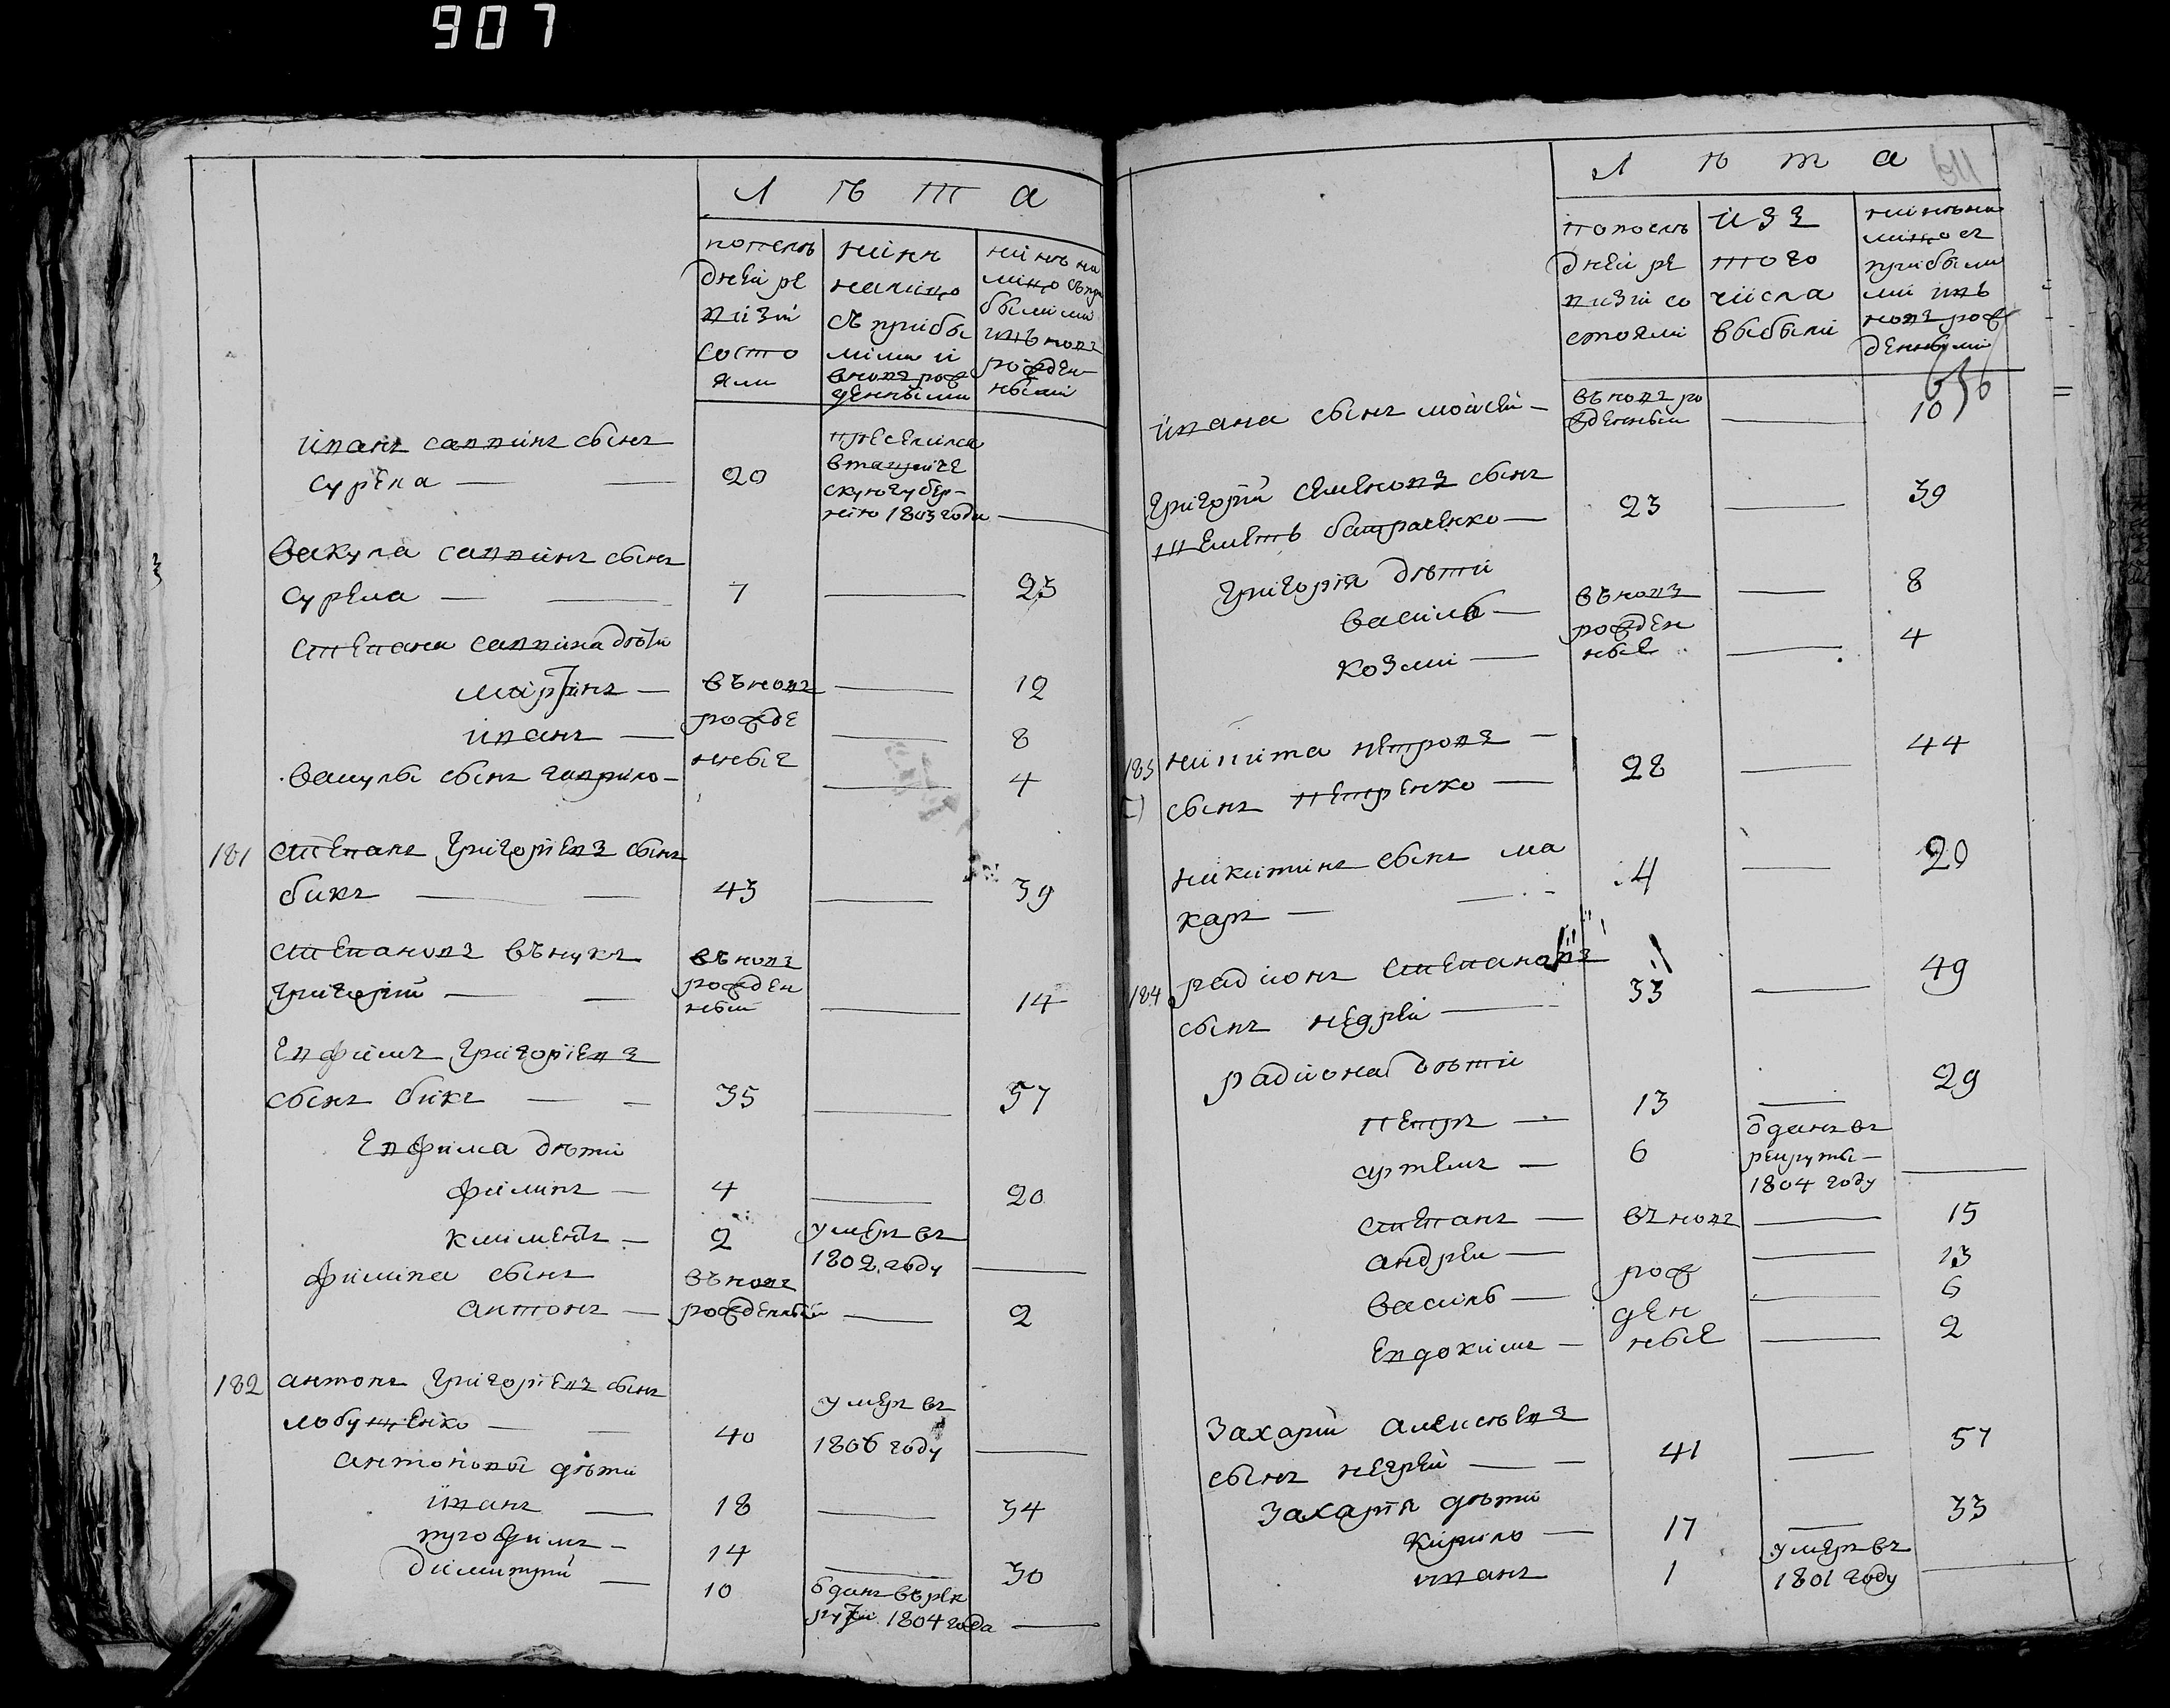 907
Л ѣ т а
попослѣ
дней ре
визіи
состо
яли
ныне
налицо
съ прибы
лыми и
вновь рож
денными
ныне на
лицо съ при
былыми
и вновь
рожден
ными
Иванъ Саввинъ сынъ
Сурела — — 20
преселился
в тавриче
скую губер-
нию 1803 года —
Вакула Саввинъ сынъ
Сурела — — 7 — 23
Степана Саввина дѣти
Мартинъ — вновь — 12
Иванъ — рожде — 8
Вакулы сынъ Гаврило — нные — 4
181 Степанъ Григорьевъ сынъ
Бикъ — — 43 — 59
Степановъ внукъ
Григорій — — вновь рожден ный — 14
Евфимъ Григорьевъ
сынъ Бикъ — — 35 — 51
Евфима дѣти
Филипъ — 4 — 20
Климентъ — 2 умеръ въ
1802 году —
Филипа сынъ
Антонъ — вновь рожденный — 2
182 Антонъ Григорьевъ сынъ
Лобущенко — — 40 умеръ въ
1806 году —
Антоновы дѣти
Иванъ — 18 — 34
Трофимъ — 14 — 30
Димитрій — 10 отданъ въ рек
руты 1804 года —
611
Л ѣ т а
попослѣ
дней ре
визіи со
стояли
изъ
того
числа
выбыли
ныне на
лицо съ
прибылы
ми и вновь
рож
денными
656
Ивана сынъ Мойсей — вновь ро
жденный — 10
Григорій Семеновъ сынъ
Шеметь Батраченко — 23 — 39
Григорія дѣти
Василь — вновь — 8
Козма — рожден ные — 4
183 Никита Петровъ —
сынъ Петренко — 28 — 44
Никитинъ сынъ Ма
каръ — — 4 — 20
184 Радионъ Степановъ
сынъ Недрей — 33 — 49
Радиона дѣти
Петръ — 13 — 29
Артемъ — 6 отданъ въ
рекруты —
1804 году —
Степанъ — вновь — 15
Андрей — рож — 13
Василь — ден — 6
Евдокимъ — ные — 2
Захарій Алексѣевъ
сынъ Недрей — — 41 — 57
Захарія дѣти
Кирило — 17 — 33
Иванъ 1 умеръ въ
1801 году —